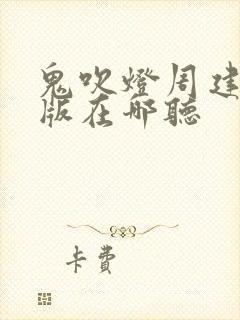 鬼吹燈周建
版在哪聽
卡費